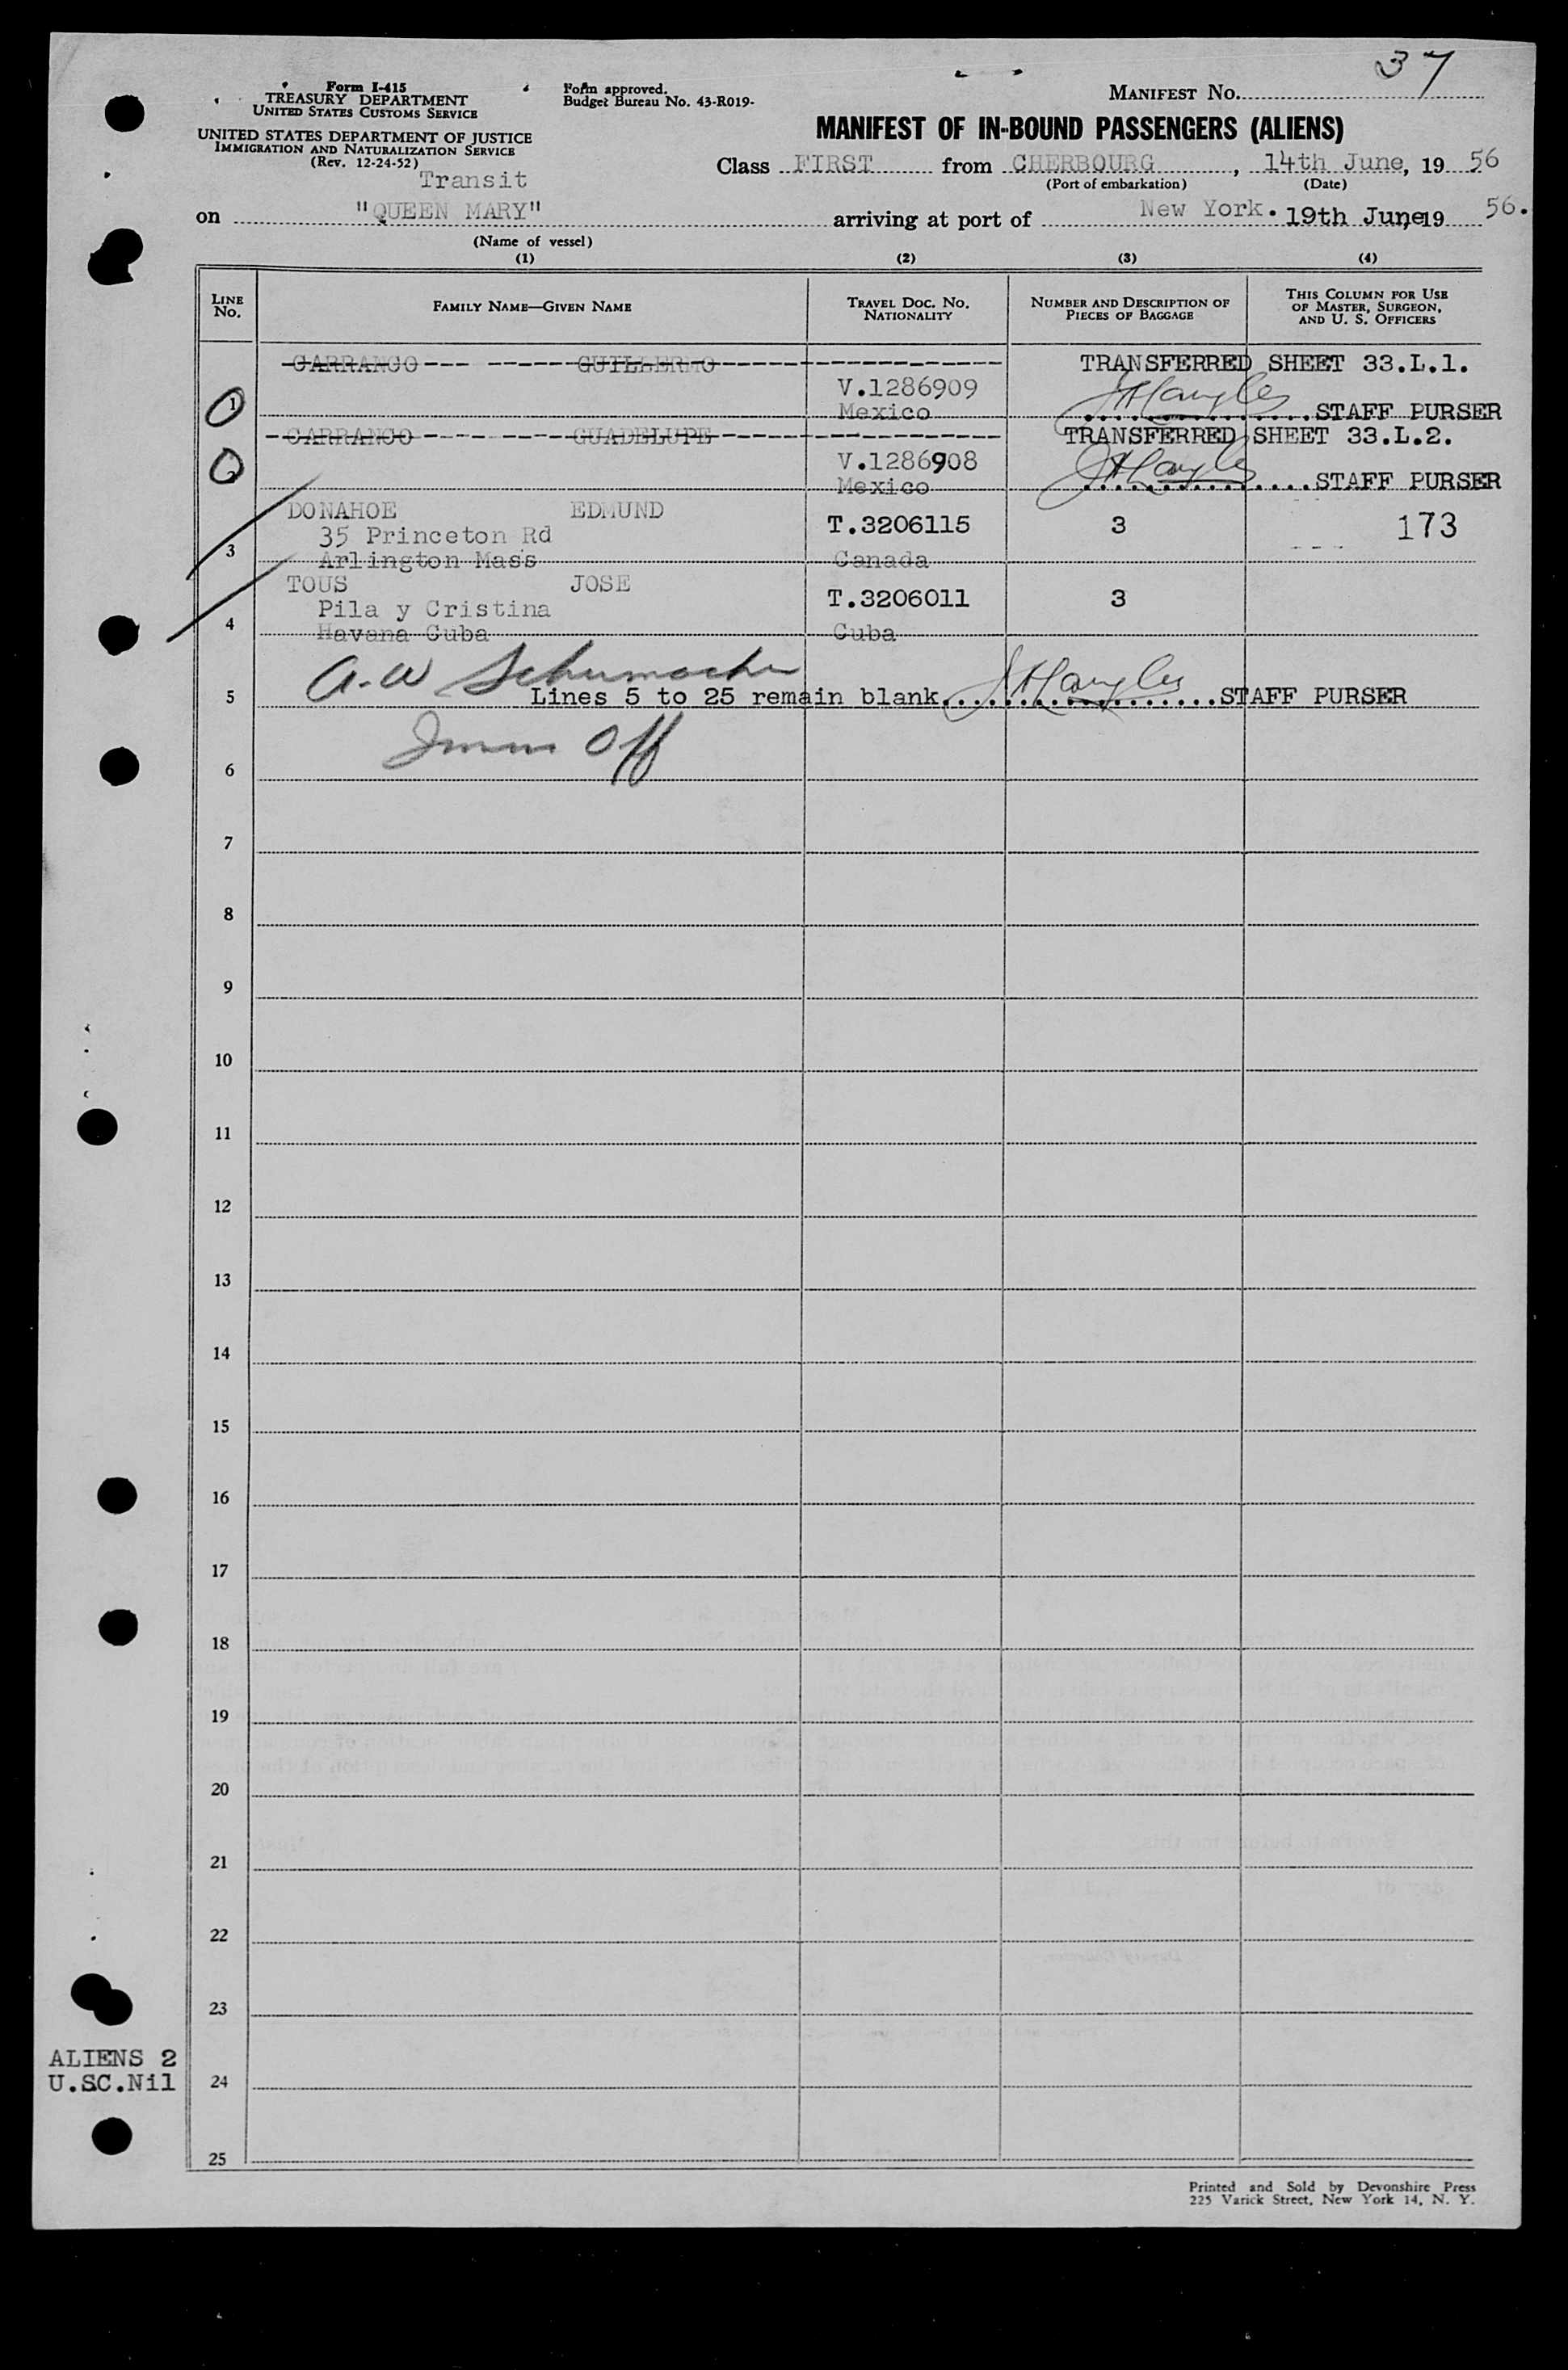 37
Form I-415
TREASURY DEPARTMENT
UNITED STATES CUSTOMS SERVICE
UNITED STATES DEPARTMENT OF JUSTICE
IMMIGRATION AND NATURALIZATION SERVICE
(Rev. 12-24-52)
Form approved.
Budget Bureau No. 43-R019-
MANIFEST NO.
MANIFEST OF IN-BOUND PASSENGERS (ALIENS)
Transit
Class FIRST from CHERBOURG, 14th June, 19 56
(Port of embarkation) (Date)
on "QUEEN MARY" arriving at port of New York. 19th June, 19 56.
(Name of vessel)
(1) (2) (3) (4)
LINE NO. FAMILY NAME—GIVEN NAME TRAVEL DOC. NO. NATIONALITY NUMBER AND DESCRIPTION OF PIECES OF BAGGAGE THIS COLUMN FOR USE OF MASTER, SURGEON, AND U. S. OFFICERS
CARRANCO GUILLERMO TRANSFERRED SHEET 33.L.1.
V.1286909
1 Mexico STAFF PURSER
CARRANCO GUADELUPE TRANSFERRED SHEET 33.L.2.
V.1286908
2 Mexico STAFF PURSER
DONAHOE EDMUND T.3206115 3 173
35 Princeton Rd
3 Arlington Mass Canada
TOUS JOSE T.3206011 3
Pila y Cristina
4 Havana Cuba Cuba
A. W Schumacher
5 Lines 5 to 25 remain blank. STAFF PURSER
Imm Off
6
7
8
9
10
11
12
13
14
15
16
17
18
19
20
21
22
23
ALIENS 2
U.SC.Nil 24
25
Printed and Sold by Devonshire Press
225 Varick Street, New York 14, N. Y.